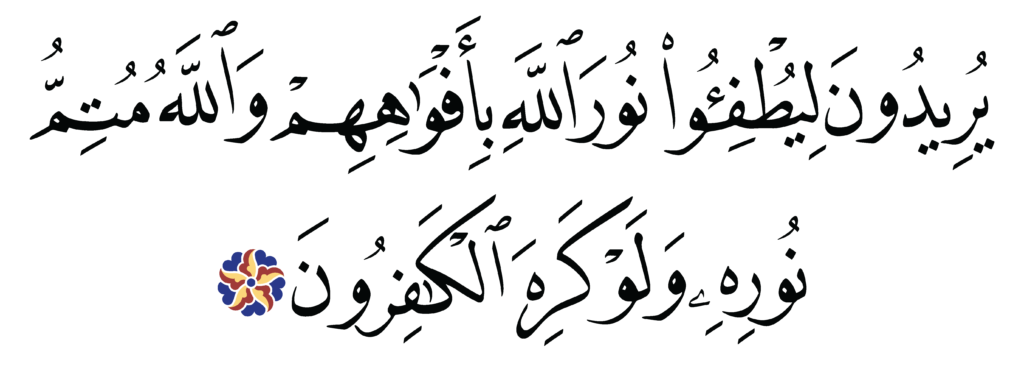 يُرِيدُونَ لِيُطْفِـُٔوا۟ نُورَ ٱللَّهِ بِأَفْوَٰهِهِمْ وَٱللَّهُ مُتِمُّ
نُورِهِۦ وَلَوْ كَرِهَ ٱلْكَـٰفِرُونَ